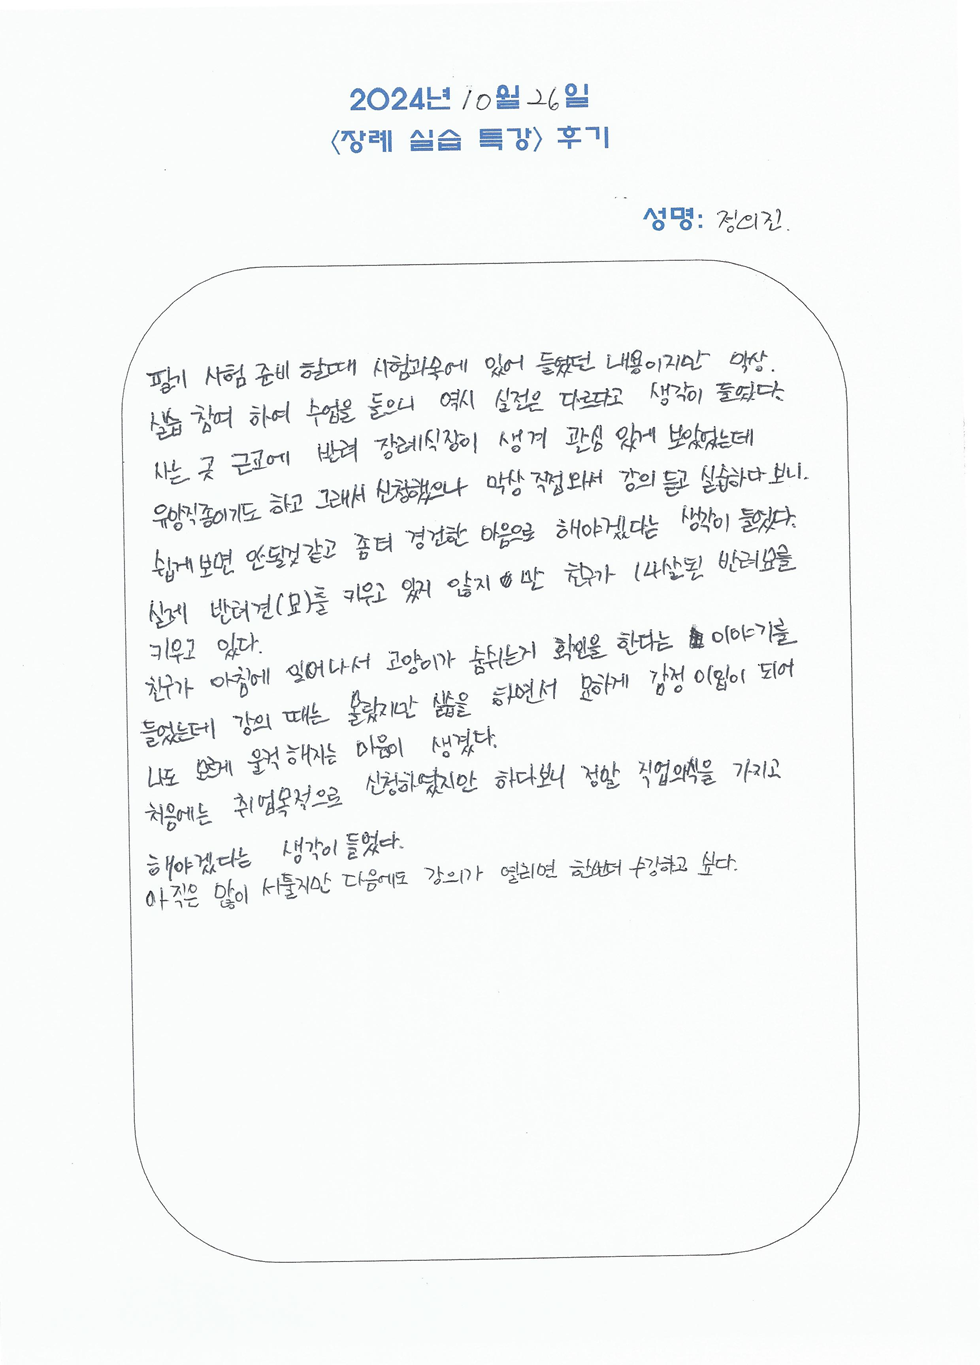 2024년 10월 26일
<장례 실습 특강> 후기
성명: 정의진.
필기 시험 준비 할때 시험과목에 있어 들었던 내용이지만 막상.
실습 참여 하여 수업을 들으니 역시 실전은 다르다고 생각이 들었다.
사는 곳 근교에 반려 장례식장이 생겨 관심 있게 보았었는데
유망직종이기도 하고 그래서 신청했으나 막상 직접와서 강의 듣고 실습하다 보니.
쉽게보면 안될것 같고 좀더 경건한 마음으로 해야겠다는 생각이 들었다.
실제 반려견(묘)를 키우고 있지 않지만 친구가 14살된 반려묘를
키우고 있다.
친구가 아침에 일어나서 고양이가 숨쉬는지 확인을 한다는 이야기를
들었는데 강의 때는 몰랐지만 실습을 하면서 묘하게 감정이입이 되어
나도 모르게 울컥해지는 마음이 생겼다.
처음에는 취업목적으로 신청하였지만 하다보니 정말 직업의식을 가지고
해야겠다는 생각이 들었다.
아직은 많이 서툴지만 다음에도 강의가 열리면 한번더 수강하고 싶다.